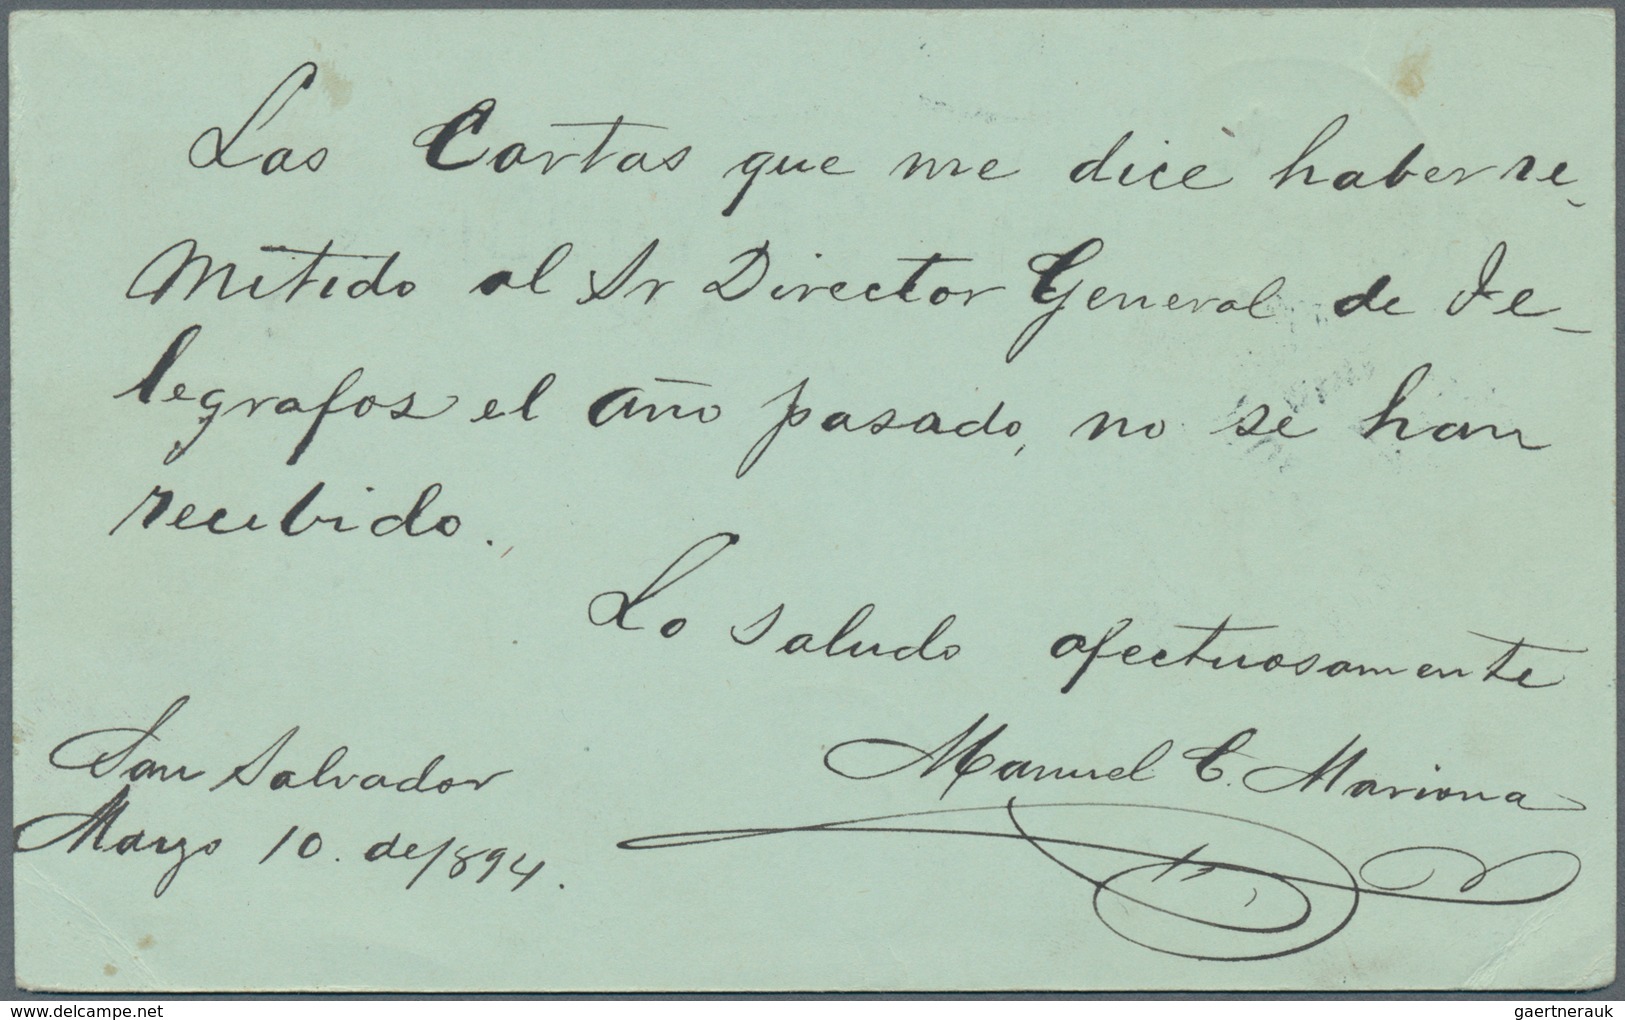 Las Cartas que me dice haber re-
mitido al Sr Director General de Te-
legrafos el año pasado, no se han
recibido.
Lo saludo afectuosamente
San Salvador
Marzo 10. de 1894.
Manuel C. Mariona
delcampe.net
gaertnerauk